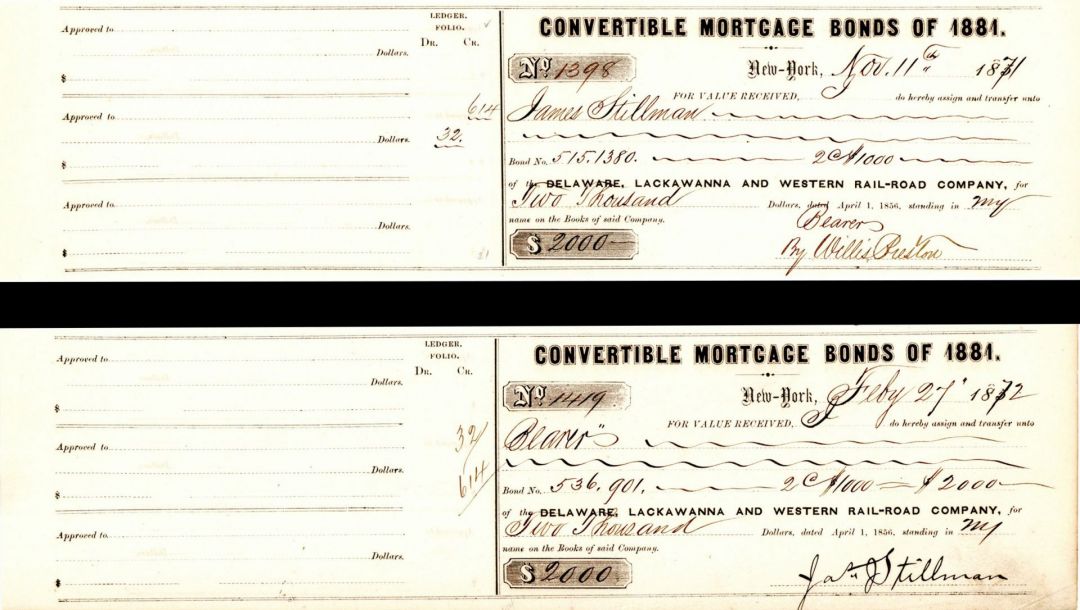 Approved to
Dollars.
$
Approved to
Dollars.
$
Approved to
Dollars.
$
LEDGER.
FOLIO.
Dr. Cr.
614
32.
CONVERTIBLE MORTGAGE BONDS OF 1881.
No 1398 New-York, Nov. 11th 1871
FOR VALUE RECEIVED, do hereby assign and transfer unto
James Stillman
Bond No. 515.1380. 2 C $1000
of the DELAWARE, LACKAWANNA AND WESTERN RAIL-ROAD COMPANY, for
Two Thousand Dollars, dated April 1, 1856, standing in my
name on the Books of said Company. Bearer
$ 2000 By Willis Preston
Approved to
Dollars.
$
Approved to
Dollars.
$
Approved to
Dollars.
$
LEDGER.
FOLIO.
Dr. Cr.
32
614
CONVERTIBLE MORTGAGE BONDS OF 1881.
No 1419 New-York, Feby 27 1872
FOR VALUE RECEIVED, do hereby assign and transfer unto
"Bearer"
Bond No. 536. 901. 2 C $1000 = $2000
of the DELAWARE, LACKAWANNA AND WESTERN RAIL-ROAD COMPANY, for
Two Thousand Dollars, dated April 1, 1856, standing in my
name on the Books of said Company.
$ 2000 Stillman